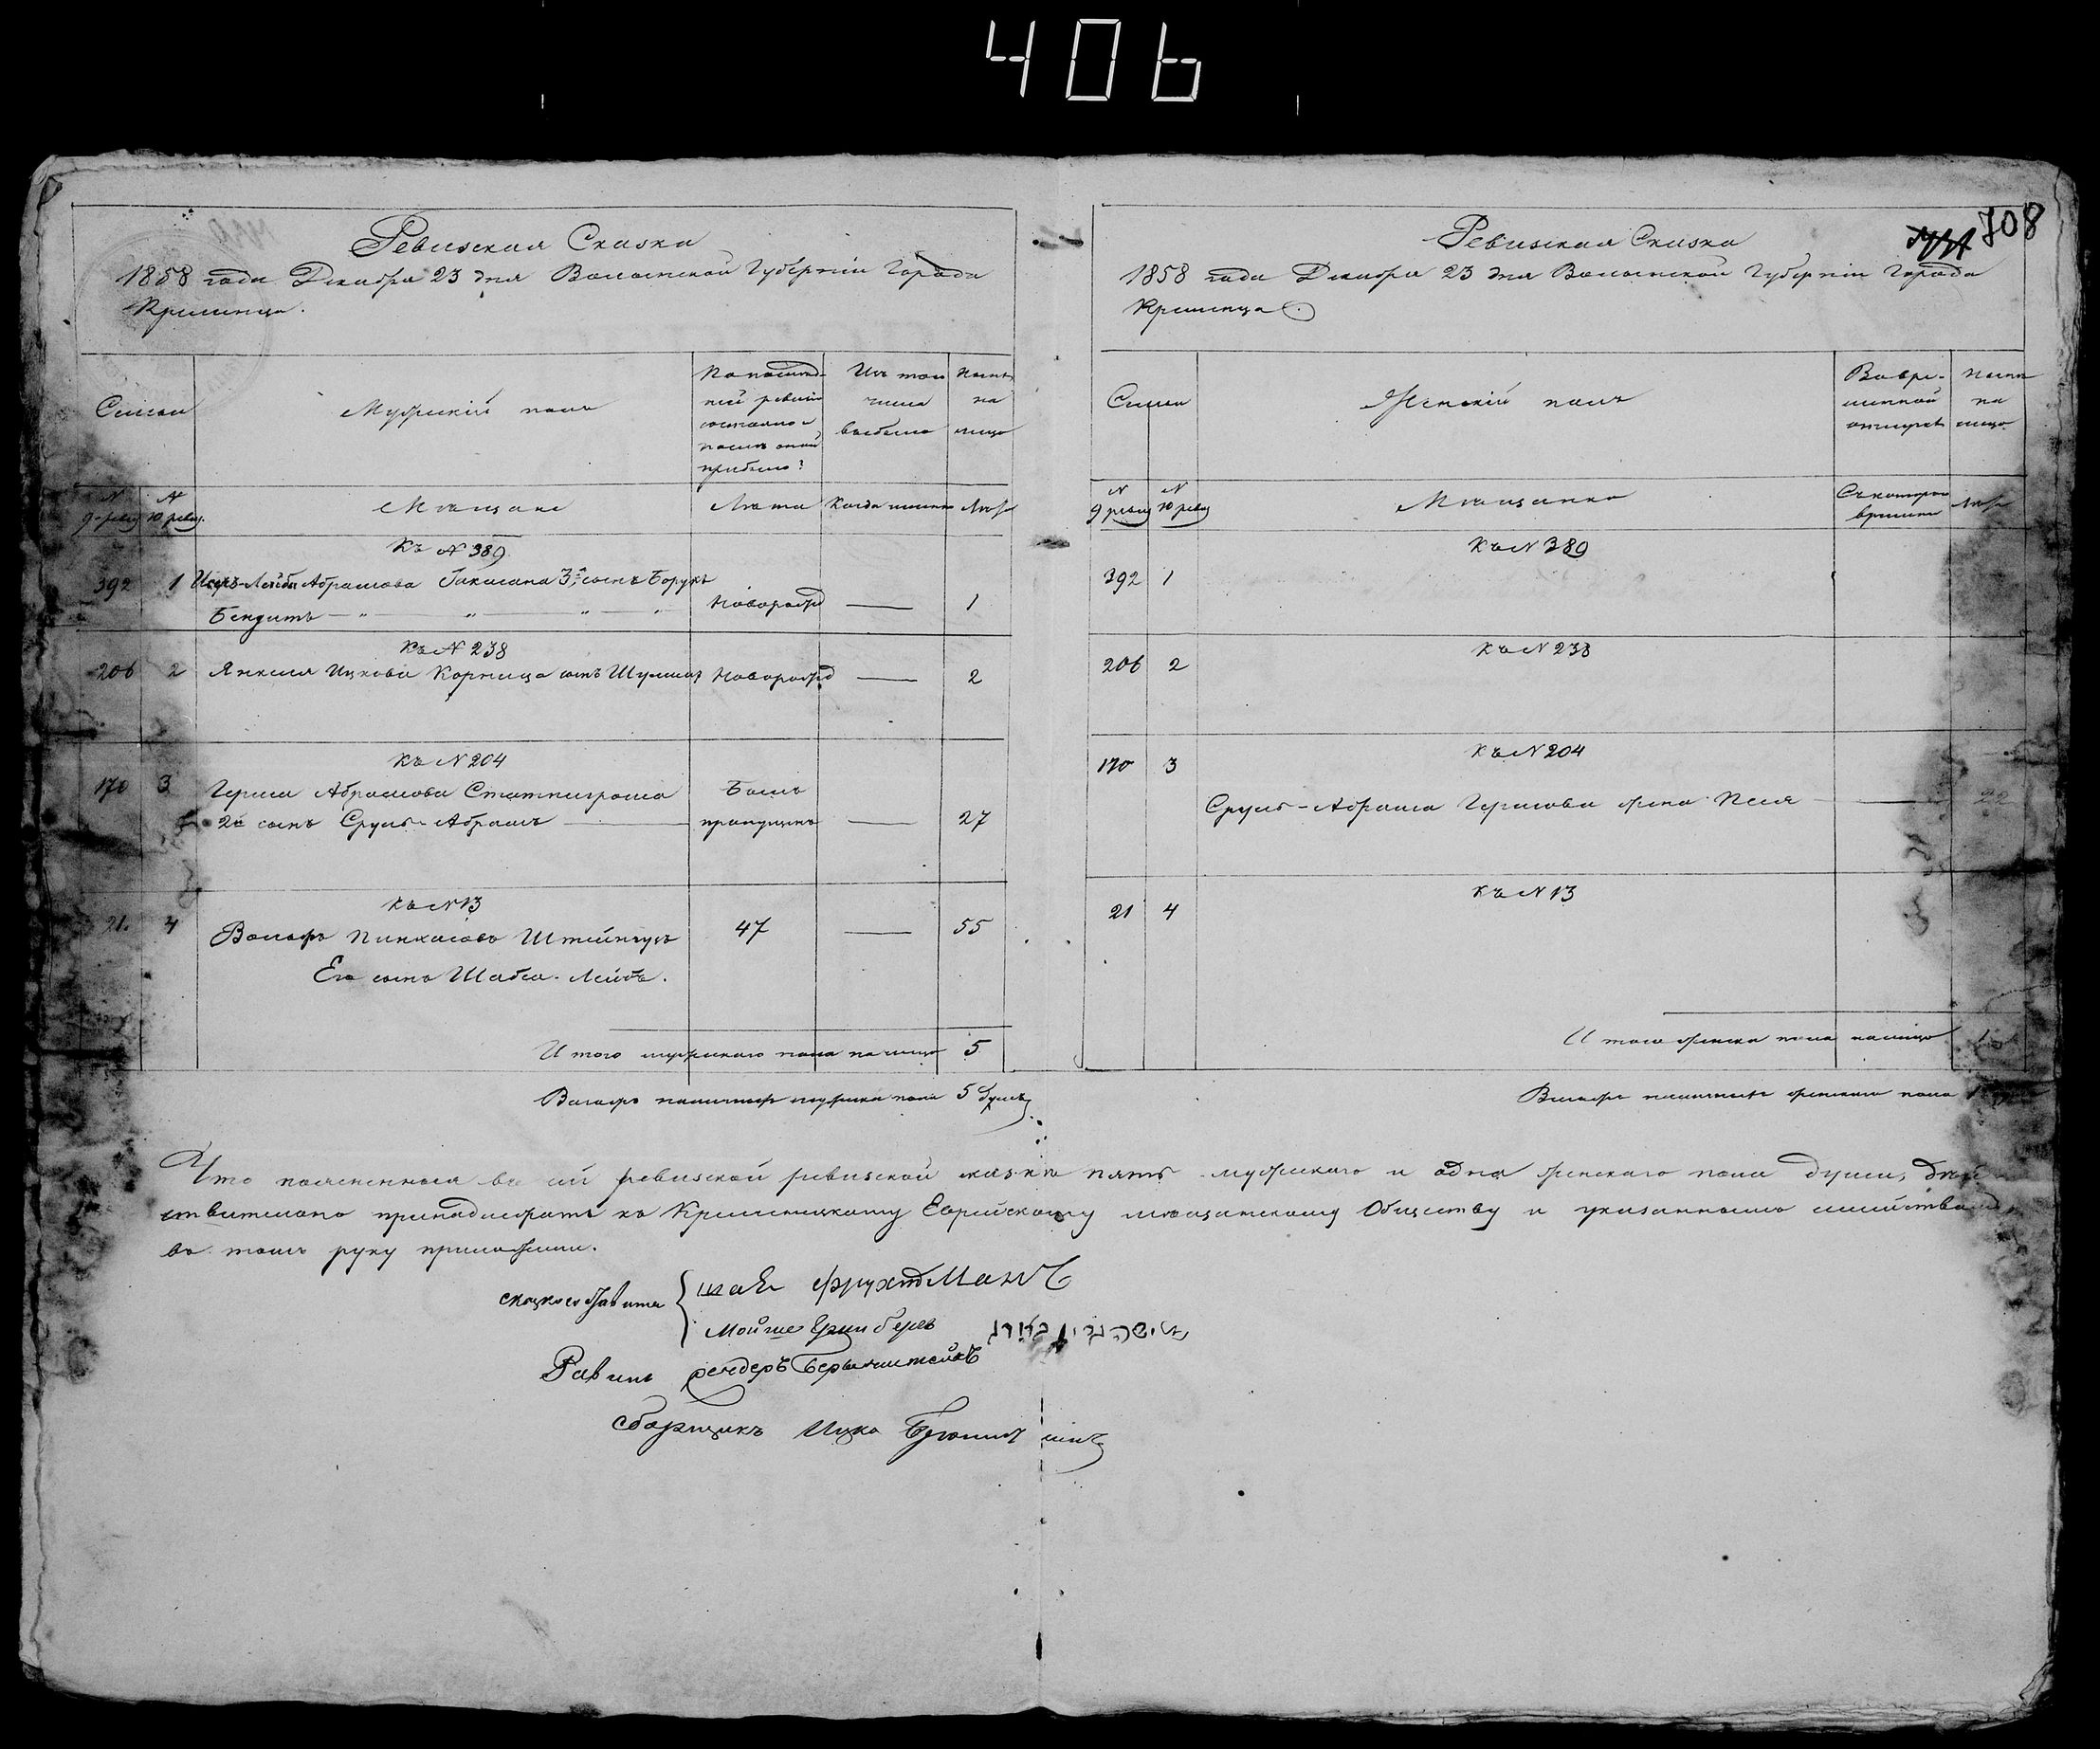 406
708
Ревизская Сказка
1858 года Декабря 23 дня Волынской Губернiи Города
Кременца.
Семьи
Мужескiй полъ
По послед-
ней ревизiи
состояло и
после оной
прибыло?
Изъ того
числа
выбыло
Ныне
на
лицо
N 9 ревиз.
N 10 ревиз.
Мѣщане
Лѣта
Когда именно
Лѣта
Къ N 389
392 1 Лейба Абрамова Гакмана 3й сынъ Борухъ
Бендитъ новорожд — 1
Къ N 238
206 2 Янкеля Ицкова Корница сынъ Шулим новорожд — 2
Къ N 204
170 3 Герша Абрамова
2й сынъ Сруль-Абрамъ
Былъ
пропущенъ — 27
Къ N 13
21. 4 Вольфъ Пинкасовъ 47 — 55
Его сынъ Шабса-Лейба.
Итого мужескаго пола налицо 5
Всего наличныхъ мужеска пола 5 душъ
Ревизская Сказка
1858 года Декабря 23 дня Волынской Губернiи Города
Кременца
Семьи
Женскiй полъ
Во вре-
менной
отлучке
Ныне
на
лицо
N 9 ревиз
N 10 ревиз
Мѣщанки
Съ котораго
времени
Лѣта
Къ N 389
392 1
Къ N 238
206 2
Къ N 204
170 3
Сруль-Абрама Гершова жена Песя — 22
Къ N 13
21 4
Итого женска пола налицо 1
Всего наличныхъ женскаго пола 1
Что поясненныя въ сей ревизской ревизской сказкѣ пять мужескаго и одна женскаго пола души, дѣй-
ствительно принадлежатъ къ Кременецкому Еврейскому мѣщанскому Обществу и указаннымъ семействамъ
въ томъ руку приложили.
{ шаЯ фрухтМанЪ
Мойше Гринберъ מישה גרין בערג
Равинъ Бернштейнъ
Сборщикъ Ицко